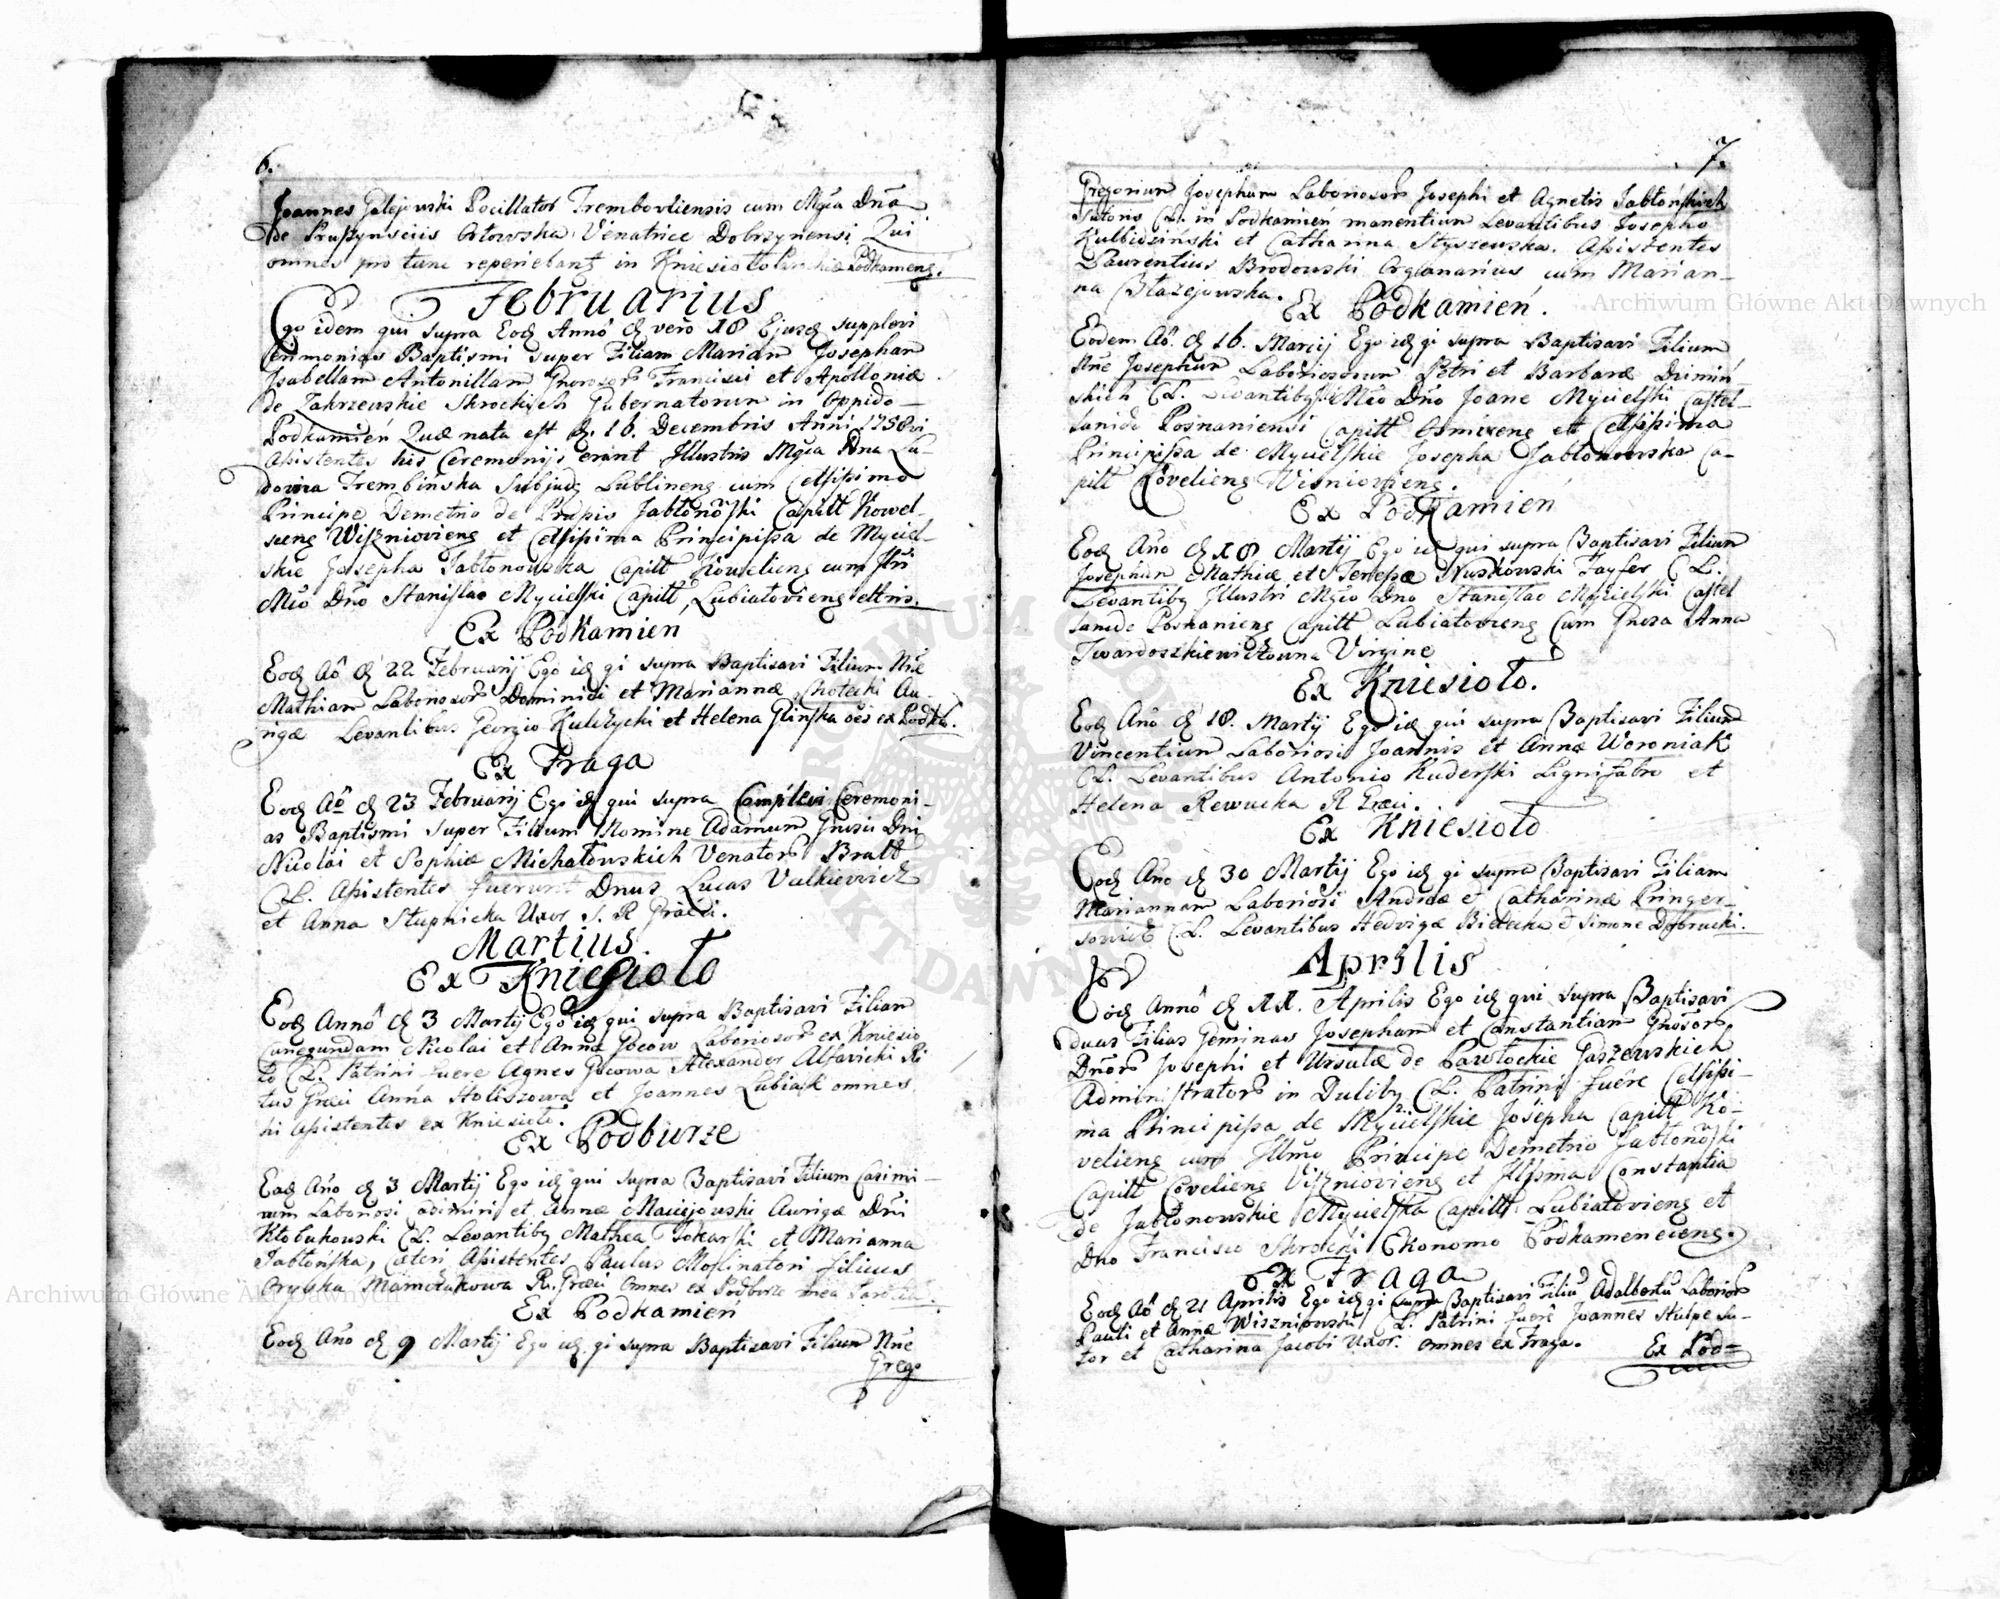 6.
Joannes Golejowski Pocillator Trembovliensis cum Mgca Dna
de Pruszynsciis Orłowska Venatrice Dobrzynensi Qui
omnes pro tunc reperiebant in Kniesioło Parochiæ Podkamens.
Februarius
Ego idem qui supra Eod Anno d vero 18 Ejusd supplevi
Ceremonias Baptismi super Filiam Mariam Josepham
Isabellam Antonillam Gnrosor Francisci et Apolloniæ
de Zakrzewskie Skrockich Gubernatorum in Oppido
Podkamień Quæ nata est d. 16. Decembris Anni 1758vi
Asistentes his Ceremonijs erant Illustris Mgca Dna Lu-
dovica Trembinska Subjud Lublinens cum Celsissimo
Principe Demetrio de Prussis Jabłonoski Capitt Kowel-
scens Wisznioviens et Celsissima Principissa de Myciel-
skie Josepha Jabłonowska Capitt Koveliens cum Illri
Mco Dno Stanislao Mycielski Capitt, Lubiatoviens
Ex Podkamien
Eod Ao d 22 Februarij Ego id qi supra Baptisavi Filium Nne
Mathiam Laboriosor Dominici et Mariannæ Choteki Au-
rigæ Levantibus Georgio Kulczycki et Helena Glinska oes ex Podka.
Ex Fraga
Eod Ao d 23 Februarij Ego id qui supra Complevi Ceremoni-
as Baptismi super Filium Nomine Adamum Gnrsi Dni
Nicolai et Sophiæ Michałowskich Venator Bratt
C.L. Asistentes fuerunt Dnus Lucas Vulkiewicz
et Anna Stupnicka Uxor S. R Græci.
Martius.
Ex Kniesioło
Eod Anno d 3 Martij Ego id qui supra Baptisavi Filiam
Cunegundam Nicolai et Annæ Gocow Laboriosor ex Kniesio
ło C.L. Patrini fuere Agnes Gocowa Alexander Alfavicki Ri
tus Græci Anna Stoliszowa et Joannes Lubiak omnes
hi asistentes ex Kniesioło.
Ex Podburze
Eod Ano d 3 Martij Ego id qui supra Baptisavi Filium Casimi-
rum Laboriosi et Annæ Maciejowski Aurigæ Dni
Kłobukowski C.L. Levantibg Mathea Tokarski et Marianna
Jabłońska, cæteri Asistentes Paulus Molinatori filius
Oryszka R. Græci omnes ex Podburze
Ex Podkamień
Eod Ano d 9 Martij Ego id qi supra Baptisavi Filium Nne
Grego
7.
Gregorium Josephum Laboriosor Josephi et Agnetis Jabłońskich
Sutoris C.L. in Podkamień manentium Levantibus Josepho
Kulbidziński et Catharina Styszewska. Asistentes
Laurentius Brodowski Organarius cum Marian-
na Błażejowska.
Ex Podkamień.
Eodem Ao. d 16. Marcij Ego id qi supra Baptisavi Filium
Nne Josephum Laboriosorum Petri et Barbaræ Dzimiń
skich C.L. Levantibg Mco Dno Joane Mycielski Castel-
lanide Posnaniensi Capitt Osmirens et Celsissima
Principissa de Mycielskie Josepha Jabłonowska Ca-
pitt Coveliens Wisniowiens.
Ex Podkamień
Eod Ano d 18 Martij Ego id qui supra Baptisavi Filium
Josephum Mathiæ et Teressæ Nuskowski Fayfer C.L.
Levantibg Illustri Mgco Dno Stanislao Mycielski Castel
lanide Posnaniens Capitt Lubiatoviens Cum Gnrsa Anna
Twardoszkiewiczowna Virgine
Ex Kniesioło.
Eod Ano d 18. Martij Ego id qui supra Baptisavi Filium
Vincentium Laboriosi Joannis et Annæ Woroniak
C.L. Levantibus Antonio Kuderski Lignifabro et
Helena Rewucka R Græci.
Ex Kniesioło
Eod Ano d 30 Martij Ego id qi supra Baptisavi Filiam
Mariannam Laboriosi Andreæ et Catharinæ Pringer-
sowicz C.L. Levantibus Hedvigæ Bielecka et Simone Dobrucki.
Aprilis
Eod Anno d 11. Aprilis Ego id qui supra Baptisavi
duas Filias Geminas Josepham et Constantiam Gnosor
Dnor Josephi et Ursulæ de Pawłockie Jaszewskich
Administrator in Duliby C.L. Patrini fuere Celsissi-
ma Principissa de Mycielskie Josepha Capitt Ko-
veliens cum Illmo Principe Demetrio Jabłonoski
Capitt Coveliens Viszniowiens et Illssma Constantia
de Jabłonowskie Mycielska Capitt Lubiatoviens et
Dno Francisco Skrocki Ekonomo Podkameneciens.
Ex Fraga
Eod Ao d 21 Aprilis Ego id qi supra Baptisavi Filiu Adalbertu Laborior
Pauli et Annæ Wiszniowski C.L. Patrini fuere Joannes Skulpe Su-
tor et Catharina Jacobi Uxor. omnes ex Fraga.
Ex Pod=
Archiwum Główne Akt Dawnych
Archiwum Główne Akt Dawnych
ARCHIWUM GŁÓWNE AKT DAWNYCH